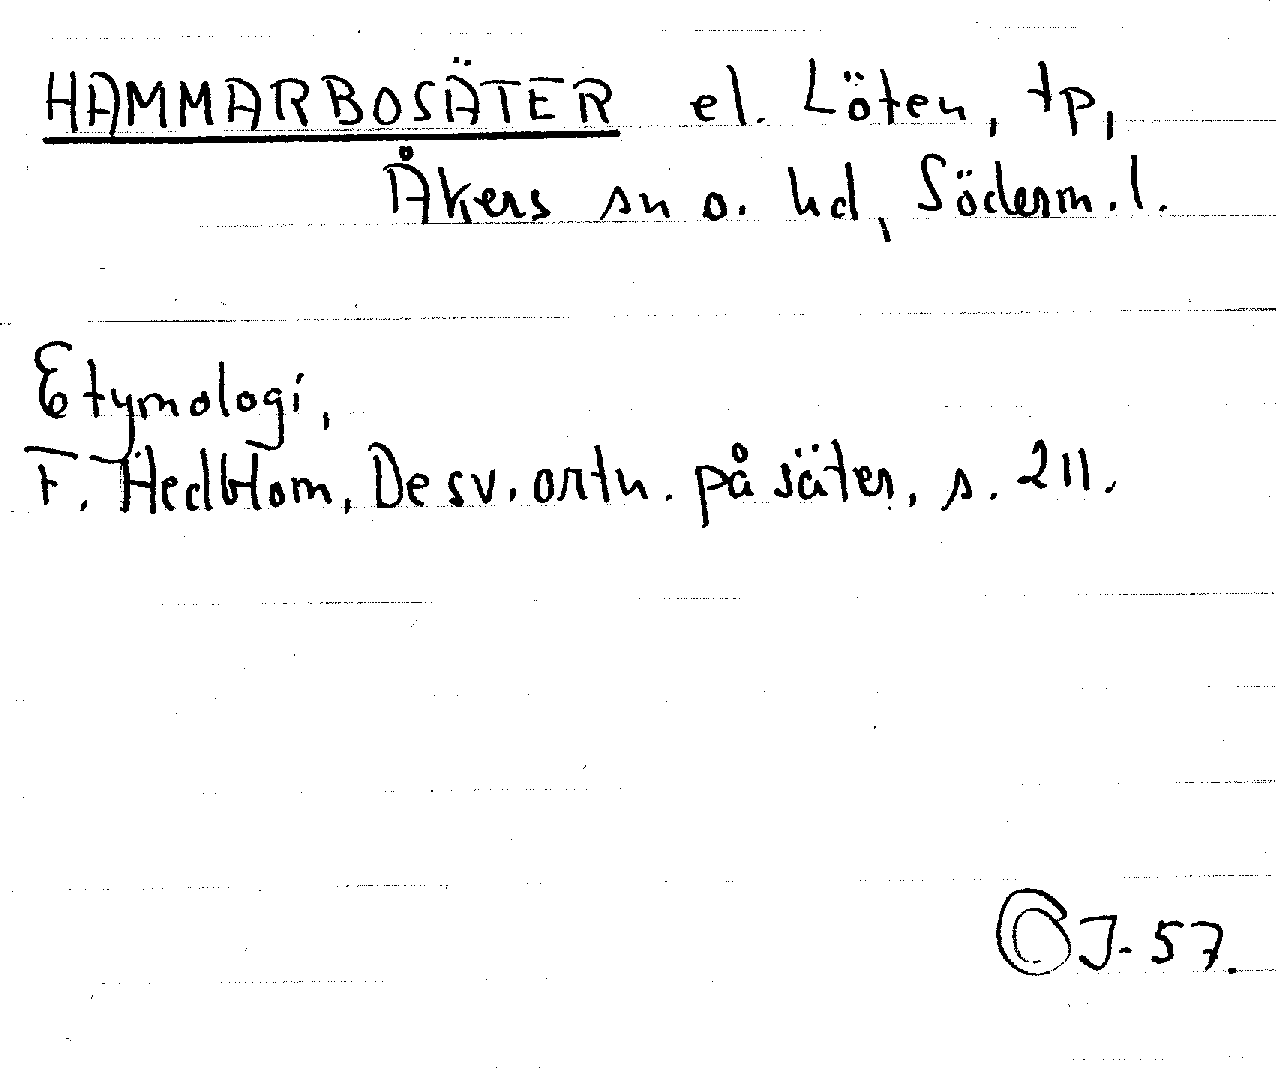 HAMMARBOSÄTER el. Löten, tp,
Åkers sn o. hd, Söderm. l.
Etymologi,
F. Hedblom, De sv. ortn. på säter, s. 211.
J-57.